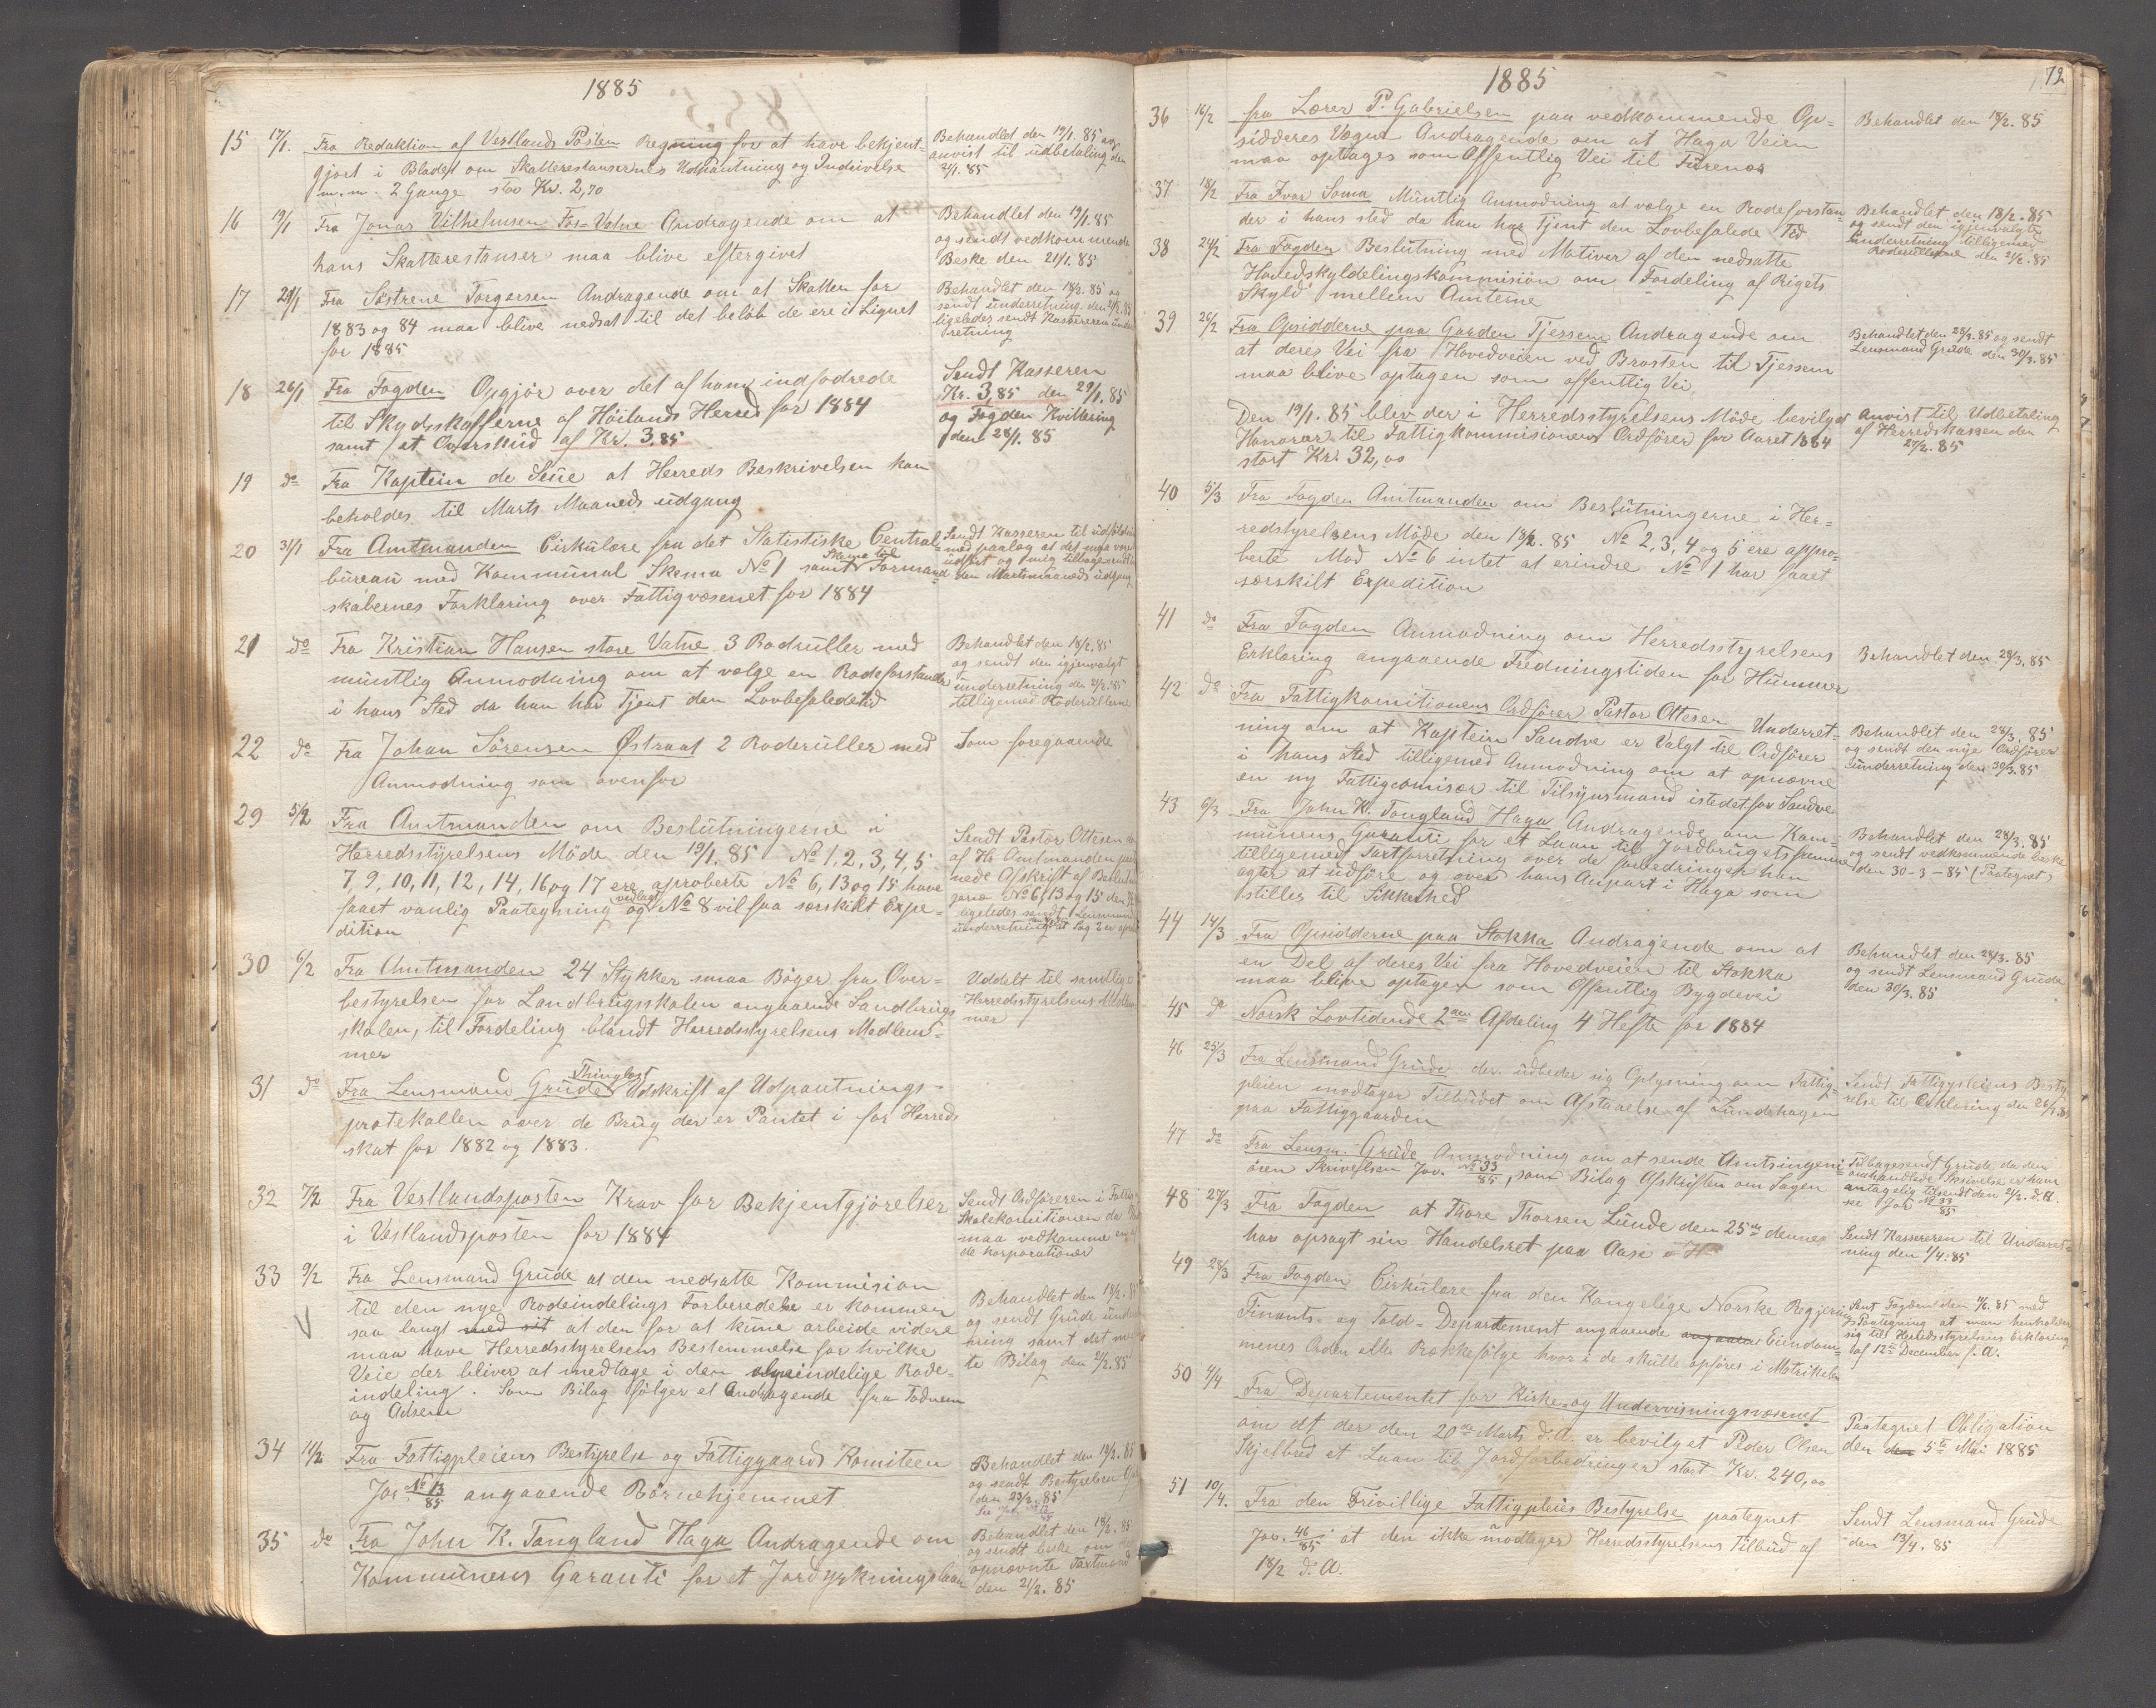 1885
15 17/1. Fra Redaktion af Vestlands Posten Regning for at have bekjent-
gjort i Bladet om Skatterestansernes Udpantning og Inddrivelse
m.m. 2 Gange stor Kr. 2,70
Behandlet den 19/1. 85 og
anvist til udbetaling den
21/1. 85
16 19/1 Fra Jonas Vilhelmsen Fos-Vatne Andragende om at
hans Skatterestanser maa blive eftergivet
Behandlet den 19/1. 85
og sendt vedkommende
Beske den 21/1. 85
17 21/1 Fra Söstrene Torgersen Andragende om at Skatten for
1883 og 84 maa blive nedsat til det beløb de ere i Lignet
for 1885
Behandlet den 18/2. 85 og
sendt underretning den 21/2. 85
ligeledes sendt Kassereren under
retning
18 26/1 Fra Fogden Opgjör over det af ham indfodrede
til Skydsskafferne af Höilands Herred for 1884
samt et Overskud af Kr. 3,85
Sendt Kasseren
Kr. 3,85 den 29/1. 85
og Fogden Kvittering
den 28/1. 85
19 do Fra Kaptein de Seue at Herreds Beskrivelsen kan
beholdes til Marts Maaneds udgang
20 31/1 Fra Amtmanden Cirkulære fra det Statistiske Central-
bureau med Kommunal Skema No 1 samt Skema til Formand
skabernes Forklaring over Fattigvæsenet for 1884
Sendt Kasseren til udfyldning
med paalæg at det maa være
udfört og mig tilbagesendt in
den Martsmaaneds udgang
21 do Fra Kristian Hansen store Vatne 3 Roderuller med
mundtlig Anmodning om at vælge en Rodeforstander
i hans Sted da han har Tjent den Lovbefalede tid
Behandlet den 18/2. 85
og sendt den igjenvalgt
underretning den 21/2. 85
tilligemed Roderullerne
22 do Fra Johan Sörensen Østraat 2 Roderuller med
Anmodning som ovenfor
Som foregaaende
29 5/2 Fra Amtmanden om Beslutningerne i
Herredsstyrelsens Möde den 19/1. 85 No 1, 2, 3, 4, 5
7, 9, 10, 11, 12, 14, 16 og 17 ere aproberte No 6, 13 og 15 have
faaet vanlig Paategning vedlagt og No 8 vil faa særskilt Expe-
dition
Sendt Pastor Ottesen
af Hr Amtmanden
nede Afskrift af
No 6, 13 og 15 den
ligeledes sendt Lensmand
underretning at Sag 2 er
30 6/2 Fra Amtmanden 24 Stykker smaa Böger fra Over-
bestyrelsen for Landbrugsskolen angaaende Landbrugs
skolen, til Fordeling blandt Herredsstyrelsens Medlem-
mer
Uddelt til samtlige
Herredsstyrelsens Medlem
mer
31 do Fra Lensmand Grude Thinglæst Udskrift af Udpantnings-
protokollen over de Brug der er Pantet i for Herreds
skat for 1882 og 1883.
32 7/2 Fra Vestlandsposten Krav for Bekjentgjörelser
i Vestlandsposten for 1884
Sendt Ordföreren i Fattig
Skolekomitionen da
maa vedkomme
de korporationer
33 9/2 Fra Lensmand Grude at den nedsatte Kommision
til den nye Rodeindelings Forberedelse er kommen
saa langt med sit at den for at kune arbeide videre
maa have Herredsstyrelsens Bestemmelse for hvilke
Veie der bliver at medtage i den almindelige Rode-
indeling. Som Bilag fölger et Andragende fra Todnem
og Adsem
Behandlet den 18/2. 85
og sendt Grude under
retning samt det
te Bilag den 21/2. 85
34 11/2 Fra Fattigpleiens Bestyrelse og Fattiggaards Komiteen
Jor No 13/85 angaaende Börnehjemmet
Behandlet den 18/2. 85
og sendt Bestyrelsen
den 23/2. 85
35 do Fra John K. Tangland Haga Andragende om
Kommunens Garanti for et Jordyrkningslaan
Behandlet den 18/2. 85
og sendt beske om de
opnævnte Taxtmænd
den 21/2. 85
1885
72
36 16/2 fra Lærer P. Gabrielsen paa vedkommende Op-
sidderes Vegne Andragende om at Haga Veien
maa optages som Offentlig Vei til Furenes
Behandlet den 18/2. 85
37 18/2 Fra Ivar Soma Mundtlig Anmodning at vælge en Rodeforstan-
der i hans sted da han har Tjent den Lovbefalede Tid
Behandlet den 18/2. 85
og sendt den igjenvalgte
underretning tilligemed
Roderullerne den 21/2. 85
38 24/2 Fra Fogden Beslutning med Motiver af den nedsatte
Hovedskyldelingskommision om Fordeling af Rigets
Skyld mellem Amterne
39 26/2 Fra Opsidderne paa Garden Tjessem Andragende om
at deres Vei fra Hovedveien ved Brasten til Tjessem
maa blive optagen som offentlig Vei
Behandlet den 28/3. 85 og sendt
Lensmand Grude den 30/3. 85
Den 19/1. 85 blev der i Herredsstyrelsens Möde bevilget
Honorar til Fattigkommisionens Ordförer for Aaret 1884
stort Kr. 32,00
Anvist til Udbetaling
af Herredskassen den
27/2. 85
40 5/3 Fra Fogden Amtmanden om Beslutningerne i Her-
redstyrelsens Möde den 18/2. 85 No 2, 3, 4 og 5 ere appro-
berte Mod No 6 intet at erindre No 1 har faaet
særskilt Expedition
41 do Fra Fogden Anmodning om Herredsstyrelsens
Erklæring angaaende Fredningstiden for Hummer
Behandlet den 28/3. 85
42 do Fra Fattigkomitionens Ordförer Pastor Ottesen Underret-
ning om at Kaptein Sandve er Valgt til Ordförer
i hans Sted tilligemed Anmodning om at opnævne
en ny Fattigcomisær til Tilsynsmand istedetfor Sandve
Behandlet den 28/3. 85
og sendt den nye Ordförer
underretning den 30/3. 85
43 6/3 Fra John K. Tongland Haga Andragende om Kom-
munens Garanti for et Laan til Jordbrugets fremme
tilligemed Taxtforretning over de forbedringer han
agter at udföre og over hans Anpart i Haga som
stilles til Sikkerhed
Behandlet den 28/3. 85
og sendt vedkommende beske
den 30-3-85 (Paategnet)
44 14/3 Fra Opsidderne paa Stokka Andragende om at
en Del af deres Vei fra Hovedveien til Stokka
maa blive optagen som Offentlig Bygdevei
Behandlet den 28/3. 85
og sendt Lensmand Grude
den 30/3. 85
45 do Norsk Lovtidende 2den Afdeling 4 Hefte for 1884
46 25/3 Fra Lensmand Grude der udbeder sig Oplysning om Fattig-
pleien modtager Tilbudet om Afstaaelse af Lundehagen
paa Fattiggaarden
Sendt Fattigpleiens Besty-
relse til Erklæring den 26/3. 85
47 do Fra Lensm. Grude Anmodning om at sende Amtsingeni-
ören Skrivelsen Jor. No 33/85, som Bilag Afskriften om Sagen
Tilbagesendt Grude da den
omhandlede Skrivelse er ham
antagelig tilsendt den 21/2. d. A.
se Jor No 33/85
48 27/3 Fra Fogden at Thore Thorsen Lunde den 25de dennes
har opsagt sin Handelsret paa Aase
Sendt Kassereren til Underret-
ning den 1/4. 85
49 28/3 Fra Fogden Cirkulære fra den Kongelige Norske Regjerings
Finants- og Told-Departement angaaende angaaende Eiendom-
menes Orden eller Rækkefölge hvori de skulle opföres i Matrikelen
Sent Fogden den 11/6. 85 med
Paategning at man henholder
sig til Herredsstyrelsens Erklæring
af 12te December f. A.
50 4/4 Fra Departementet for Kirke- og Undervisningsvæsenet
om at der den 20de Marts d. A. er bevilget Peder Olsen
Skjelbred et Laan til Jordforbedringer stort Kr. 240,00
Paategnet Obligation
den den 5te Mai 1885
51 10/4. Fra den Frivillige Fattigpleies Bestyrelse paategnet
Jor. 46/85 at den ikke modtager Herredsstyrelsens Tilbud af
18/2 d. A.
Sendt Lensmand Grude
den 13/4. 85